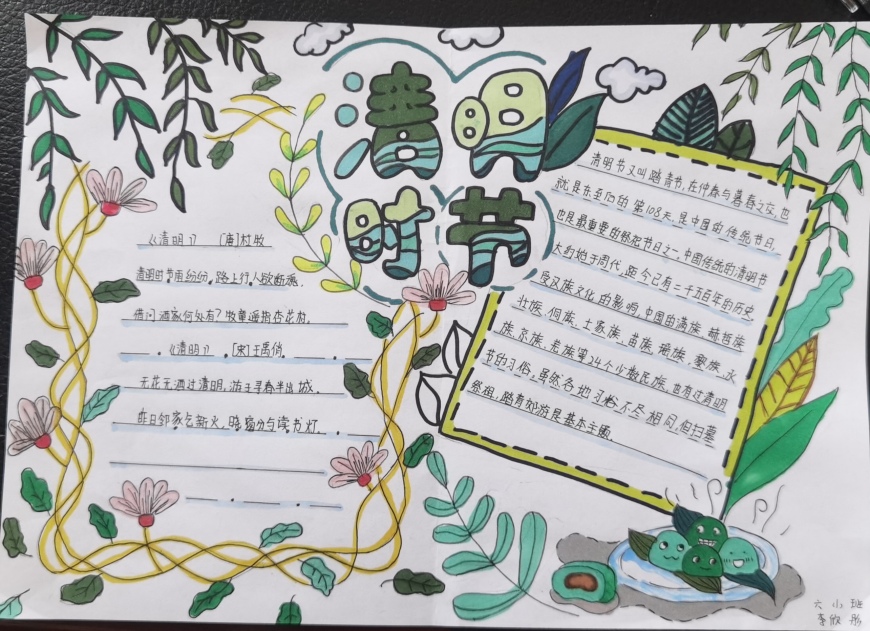 清明
时节
《清明》 [唐]杜牧
清明时节雨纷纷，路上行人欲断魂。
借问酒家何处有？牧童遥指杏花村。
《清明》 [宋]王禹偁
无花无酒过清明，
昨日邻家乞新火，晓窗分与读书灯。
清明节又叫踏青节，在仲春与暮春之交，也
就是冬至后的第108天，是中国的传统节日，
也是最重要的祭祀节日之一，中国传统的清明节
大约始于周代，距今已有二千五百年的历史
受汉族文化的影响，中国的满族、赫哲族
壮族、侗族、土家族、苗族、瑶族、黎族、水
族、京族、羌族等24个少数民族，也有过清明
节的习俗，虽然各地习俗不尽相同，但扫墓
祭祖，踏青郊游是基本主题
六小班
李欣彤